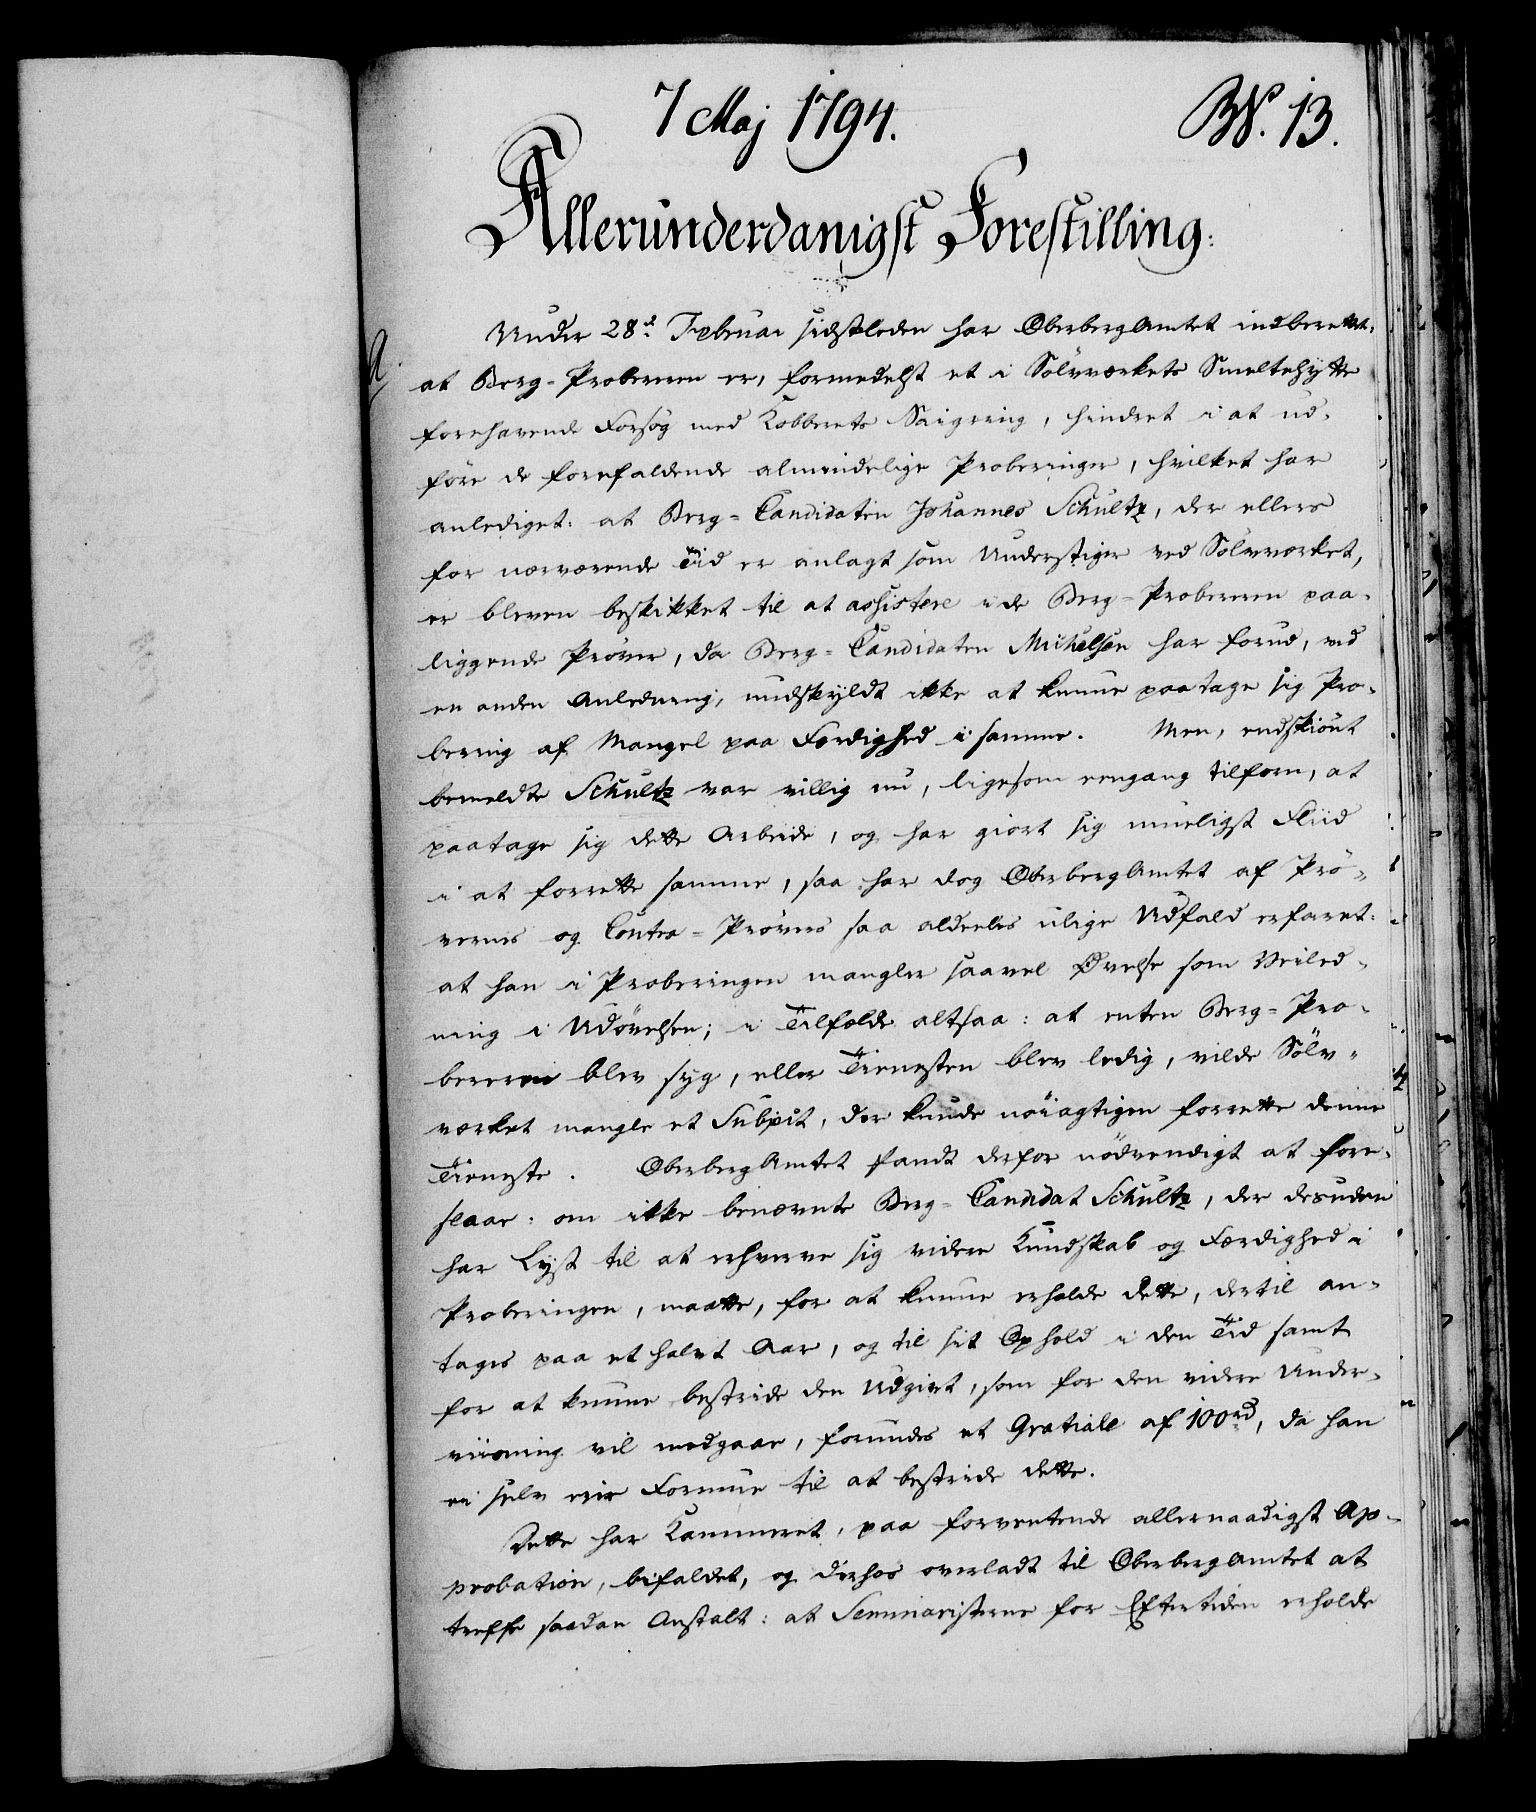 7 Maj 1794.
No. 13.
Allerunderdanigst Forestilling:
Under 28d Februar sidstleden har OberbergAmtet indberettet:
at Berg-Proberen er, formedelst et i Sölvverkets Smeltehytte
forehavende Forsøg med Kobberets Saigring, hindret i at ud-
føre de forefaldende almindelige Proberinger, hvilket har
anlediget: at Berg-Candidaten Johannes Schultz, der ellers
for nærværende Tid er anlagt som Understiger ved Sölvverket,
er bleven beskikket til at assistere i de Berg-Proberen paa-
liggende Prøver, da Berg-Candidaten Michelsen har forud, ved
en anden Anledning, undskyldt ikke at kunne paatage sig Pro-
bering af Mangel paa Færdighed i samme. Men, endskiönt
bemeldte Schultz var villig nu, ligesom eengang tilforn, at
paatage sig dette Arbeide, og har giort sig mueligst Fliid
i at forrette samme, saa har dog OberbergAmtet af Prö-
vernes og Contra-Prøvers saa aldeeles ulige Udfald erfaret:
at han i Proberingen mangler saavel Øvelse som Veiled-
ning i Udövelsen; i Tilfælde altsaa: at enten Berg-Pro-
bereren blev syg, eller Tienesten blev ledig, vilde Sölv-
verket mangle et Subject, der kunde nöiagtigen forrette denne
Tieneste. OberbergAmtet fandt derfor nödvendigt at fore-
slaae: om ikke benævnte Berg-Candidat Schultz, der desuden
har Lyst til at erhverve sig videre Kundskab og Færdighed i
Proberingen, maatte, for at kunne erholde dette, dertil an-
tages paa et halvt Aar, og til sit Ophold i den Tid samt
for at kunne bestride den Udgivt, som for den videre Under-
viisning vil medgaae, forundes et Gratiale af 100rd, da han
ei selv eier Formue til at bestride dette.
Dette har Kammeret, paa forventende allernaadigst Ap-
probation, bifaldet, og derhos overladt til OberbergAmtet at
treffe saadan Anstalt: at Seminaristerne for Eftertiden erholde